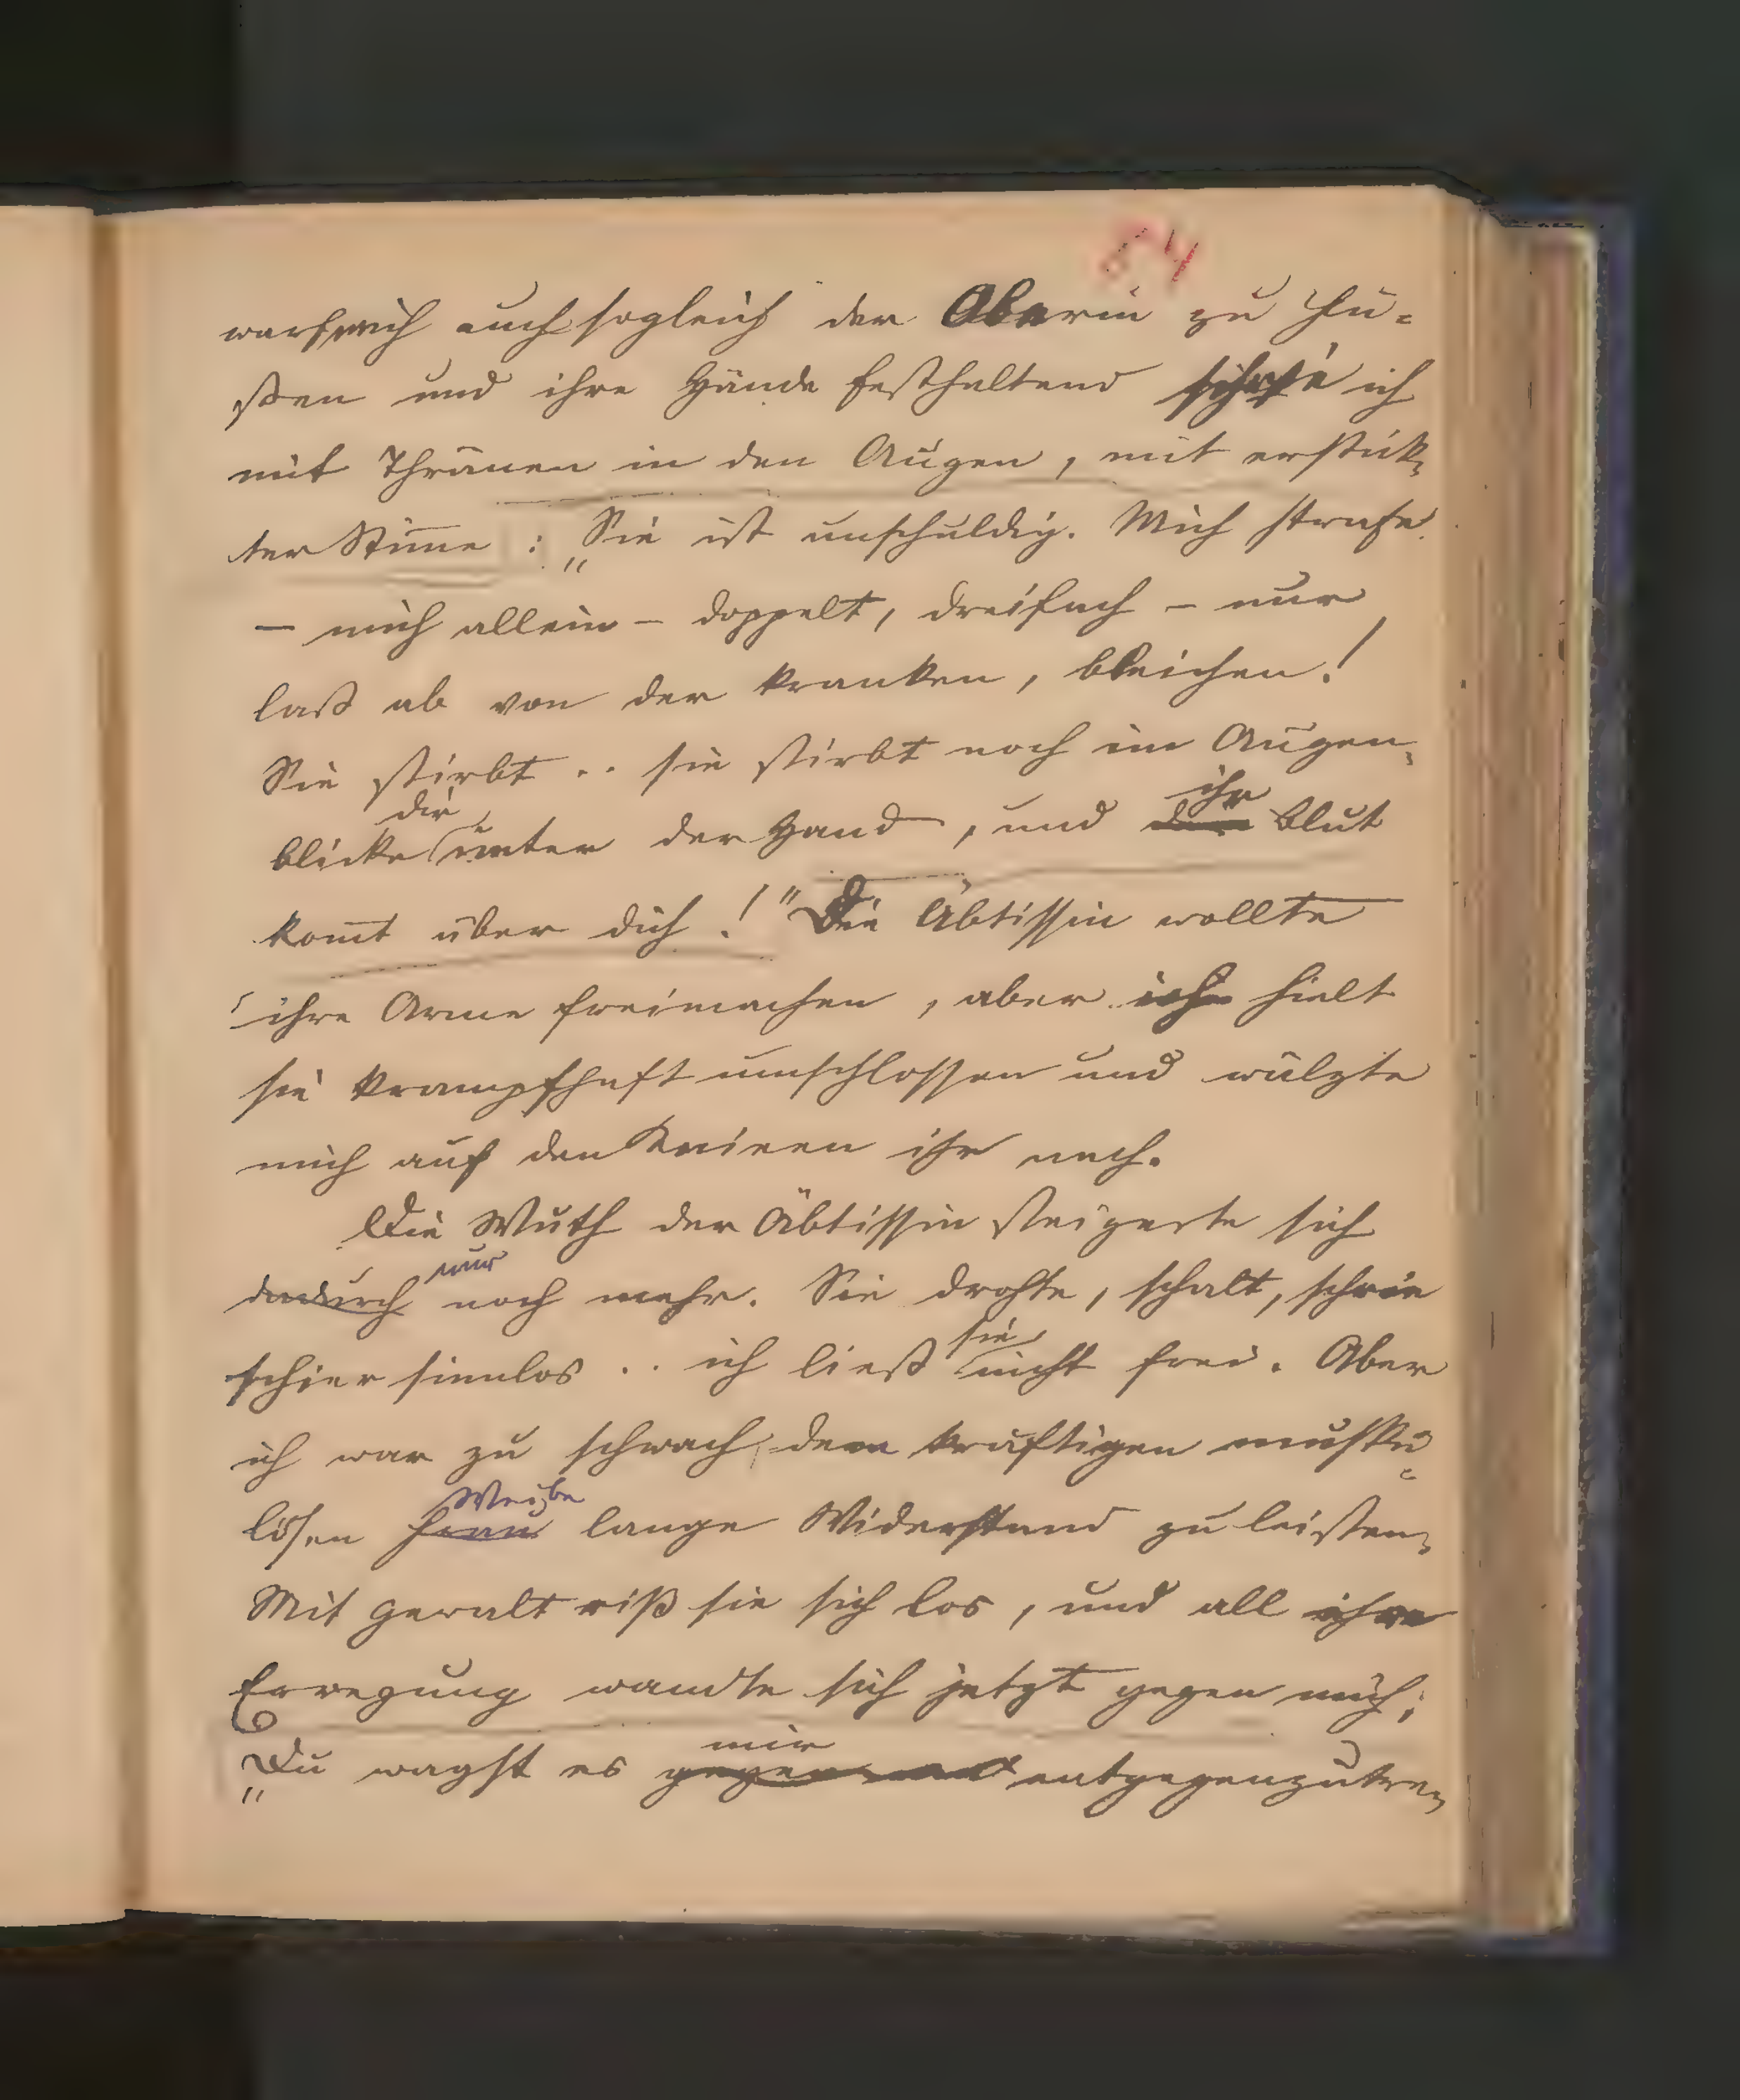 64
warf mich auch sogleich der Oberin zu Fü-
ßen und ihre Hände festhaltend schrie ich
mit Thränen in den Augen, mit erstick-
ter Stim̄e: „Sie ist unschuldig. Mich strafe
– mich allein – doppelt, dreifach – nur
laß ab von der kranken, bleichen!
Sie stirbt .. sie stirbt noch im Augen-
dir ihr
blicke unter der Hand, und Blut
kom̄t über dich!" Die Äbtissin wollte
ihre Arme freimachen, aber ich hielt
sie krampfhaft umschlossen und wälzte
mich auf den Knieen ihr nach.
Die Wuth der Äbtissin steigerte sich
nur
dadurch noch mehr. Sie drohte, schalt, schrie
sie
schier sinnlos .. ich ließ nicht frei. Aber
ich war zu schwach, dem kräftigen musku-
Weibe
lösen Frau lange Widerstand zu leisten.
Mit Gewalt riß sie sich los, und all ihre
Erregung wandte sich jetzt gegen mich;
mir
„Du wagst es entgegenzutre-